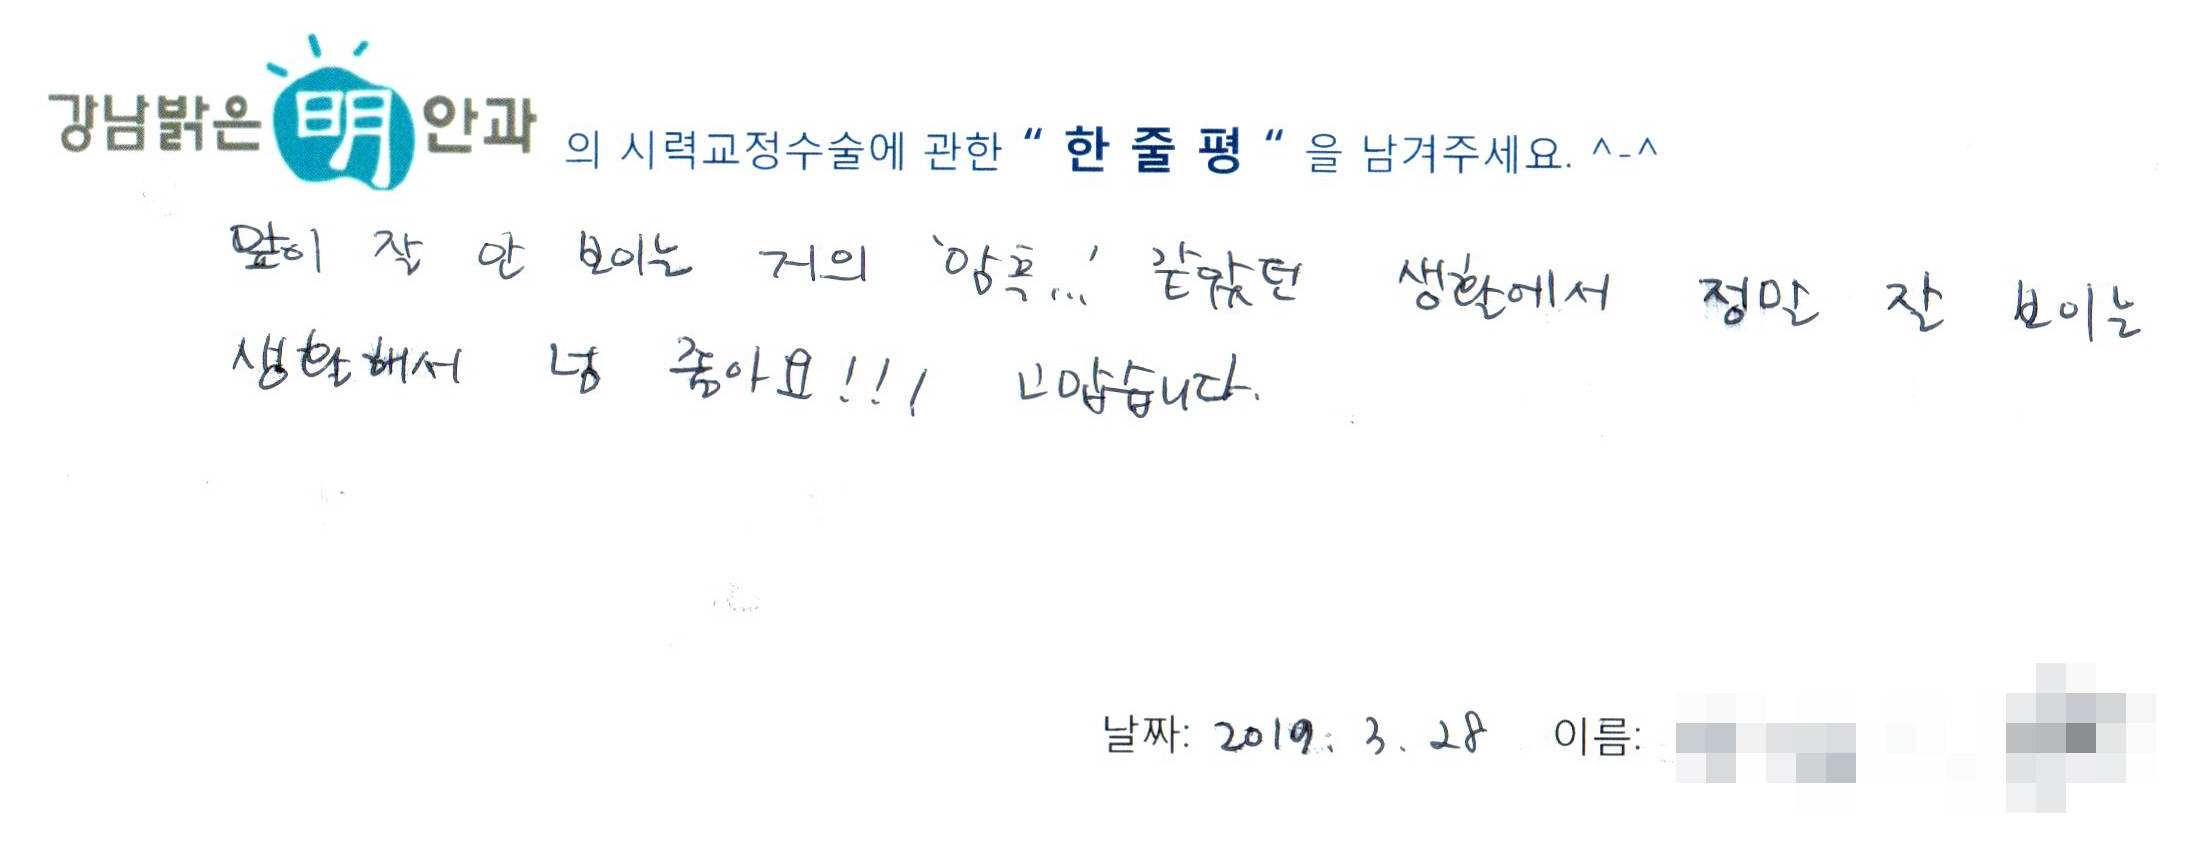 강남밝은 明 안과 의 시력교정수술에 관한 “ 한 줄 평 “ 을 남겨주세요. ^-^
앞이 잘 안 보이는 저의 '암흑...' 같았던 생활에서 정말 잘 보이는
생활해서 넘 좋아요!!! 고맙습니다.
날짜: 2019. 3. 28 이름: